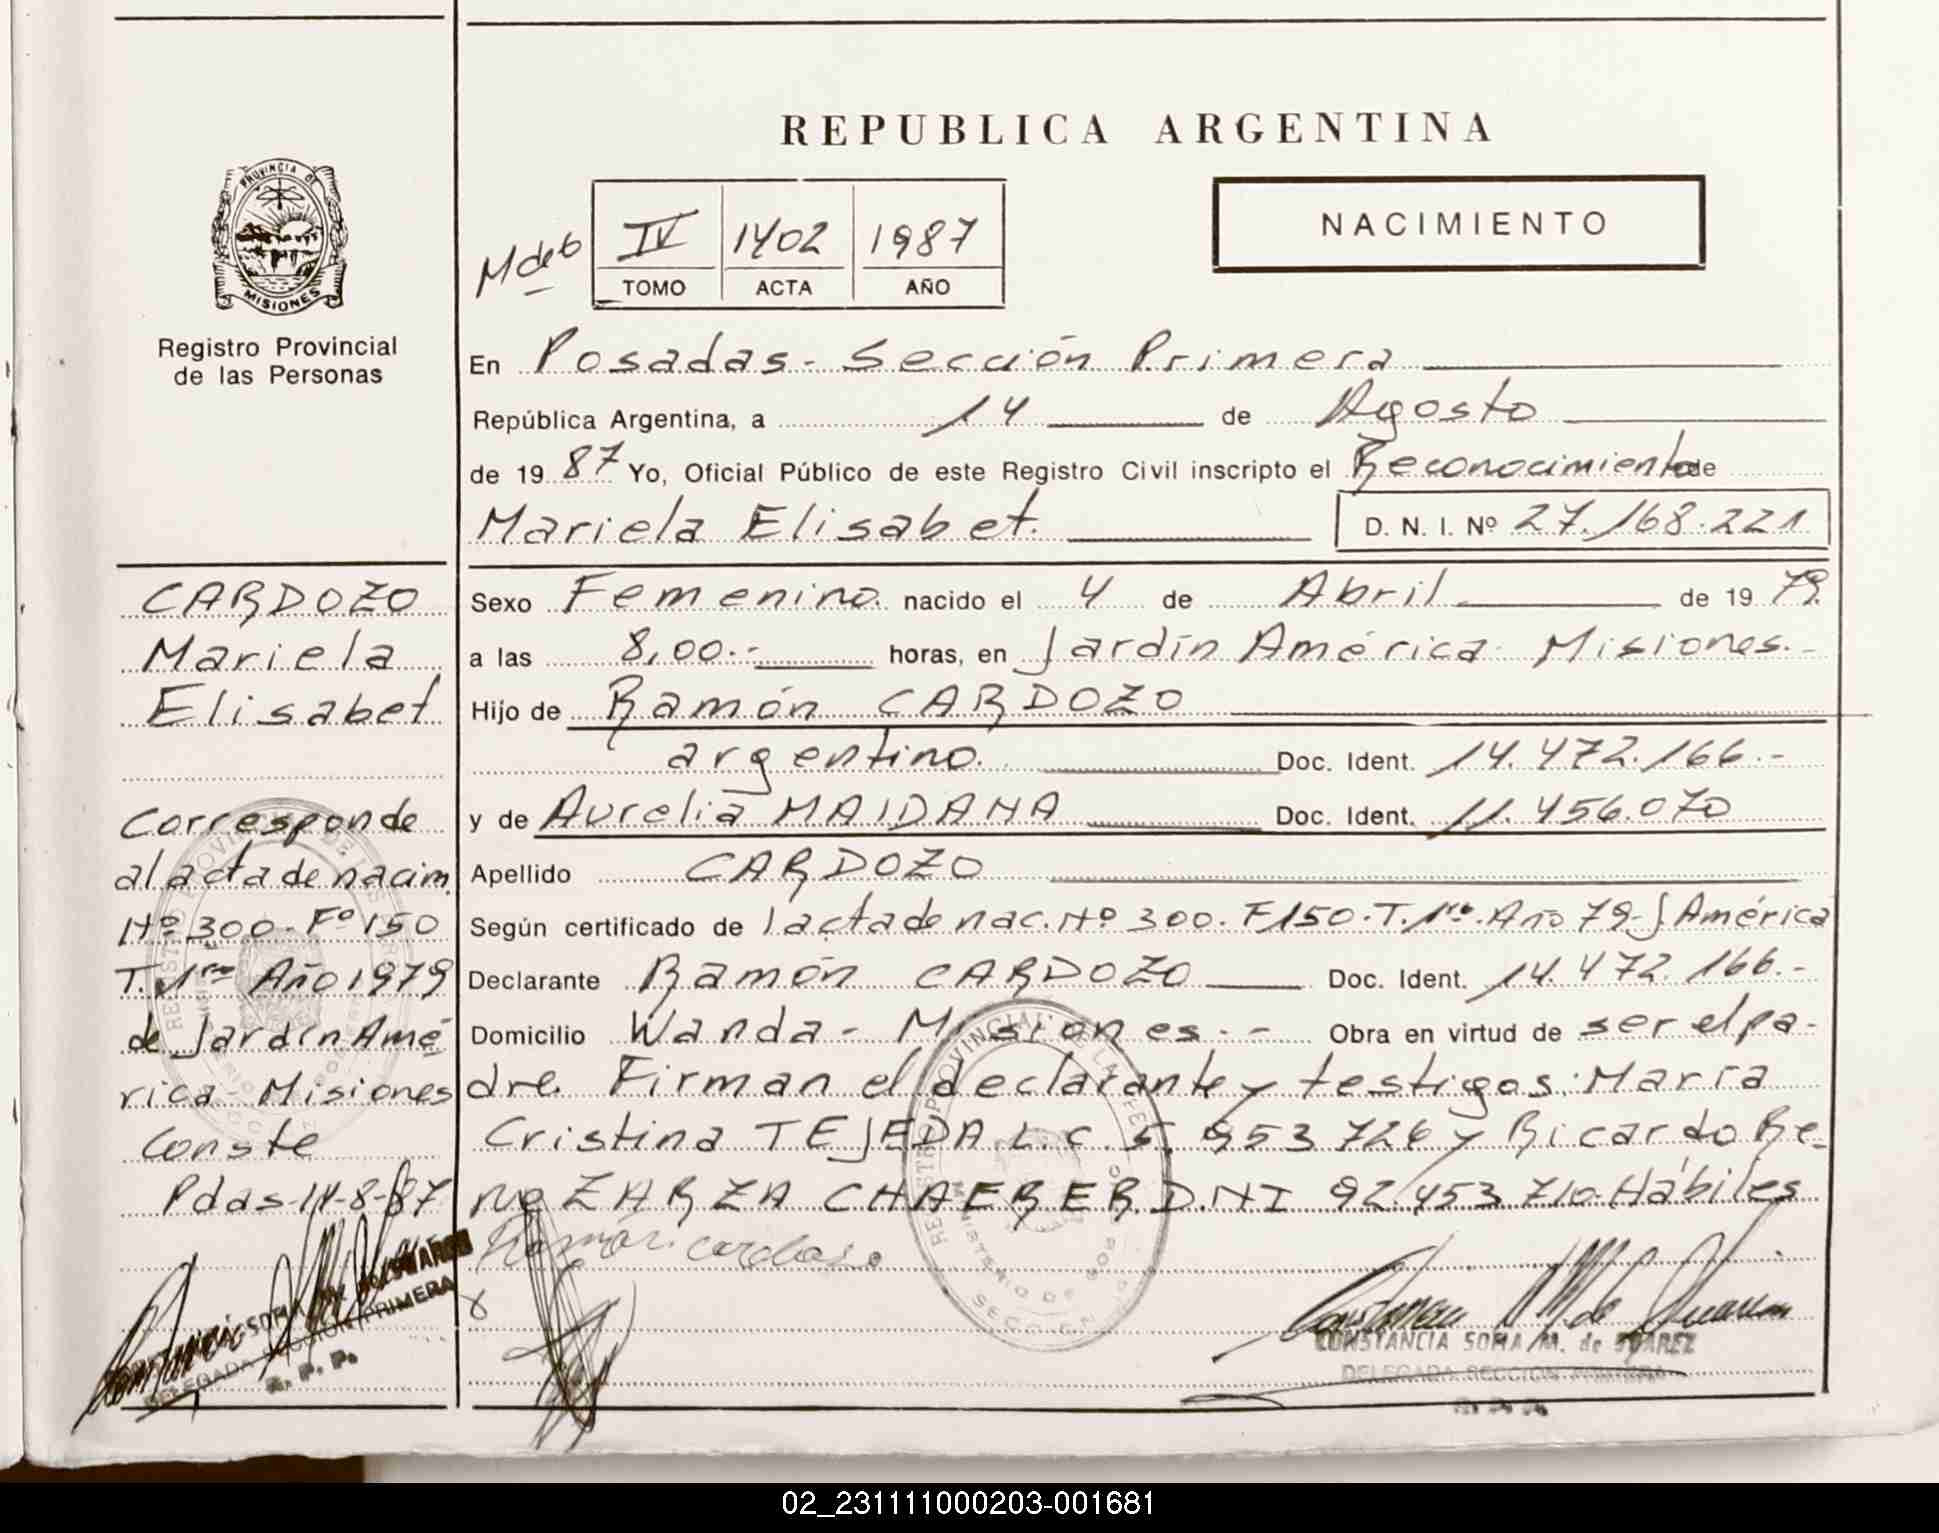 REPUBLICA ARGENTINA
PROVINCIA DE
MISIONES
Registro Provincial
de las Personas
IV 1402 1987
TOMO ACTA AÑO
NACIMIENTO
En Posadas - Sección Primera
República Argentina, a 14 de Agosto
de 19 87 Yo, Oficial Público de este Registro Civil inscripto el Reconocimiento de
Mariela Elisabet. D. N. I. Nº 27.168.221
CARDOZO
Mariela
Elisabet
Sexo Femenino. nacido el 4 de Abril de 19 79.
a las 8,00.- horas, en Jardín América - Misiones.-
Hijo de Ramón CARDOZO
argentino. Doc. Ident. 14.472.166.-
y de Aurelia MAIDANA Doc. Ident. 11.456.070
Apellido CARDOZO
Según certificado de l'acta de nac. Nº 300. Fº150. T. 1ro. Año 79- J América
Declarante Ramón CARDOZO Doc. Ident. 14.472.166.-
Domicilio Wanda - Misiones.- Obra en virtud de ser el pa-
dre. Firman el declarante y testigos: María
Cristina TEJEDA L.C. 5.953.726 y Ricardo Re-
ne ZARZA CHAERER D.N.I 92.453.710. Hábiles
Corresponde
al acta de nacim.
Nº 300 - Fº 150
T. 1ro Año 1979
de Jardín Amé
rica - Misiones
Conste
Pdas-14-8-87
Ramón cardoso
CONSTANCIA SOFIA M. de SUAREZ
DELEGADA SECCION PRIMERA
R. P. P.
DELEGADA SECCION PRIMERA
R. P. P.
02_231111000203-001681